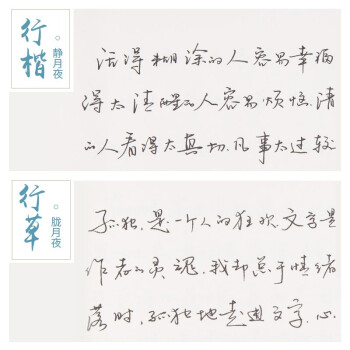 行楷
静月夜
活得糊涂的人容易幸福
得太清醒的人容易烦恼.清
的人看得太真切.凡事太过较
行草
胧月夜
孤独,是一个人的狂欢.文字是
作者的灵魂.我却总于情绪
落时,孤独地走进文字.心